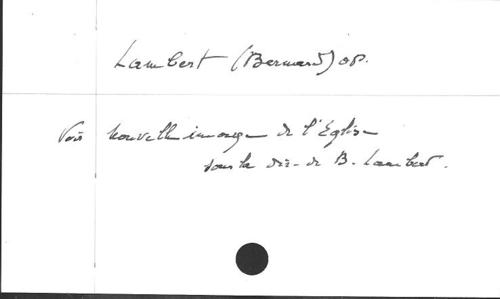 Lambert (Bernard) op.
Voir nouvelle image de l'Eglise
sous la dir. de B. Lambert.